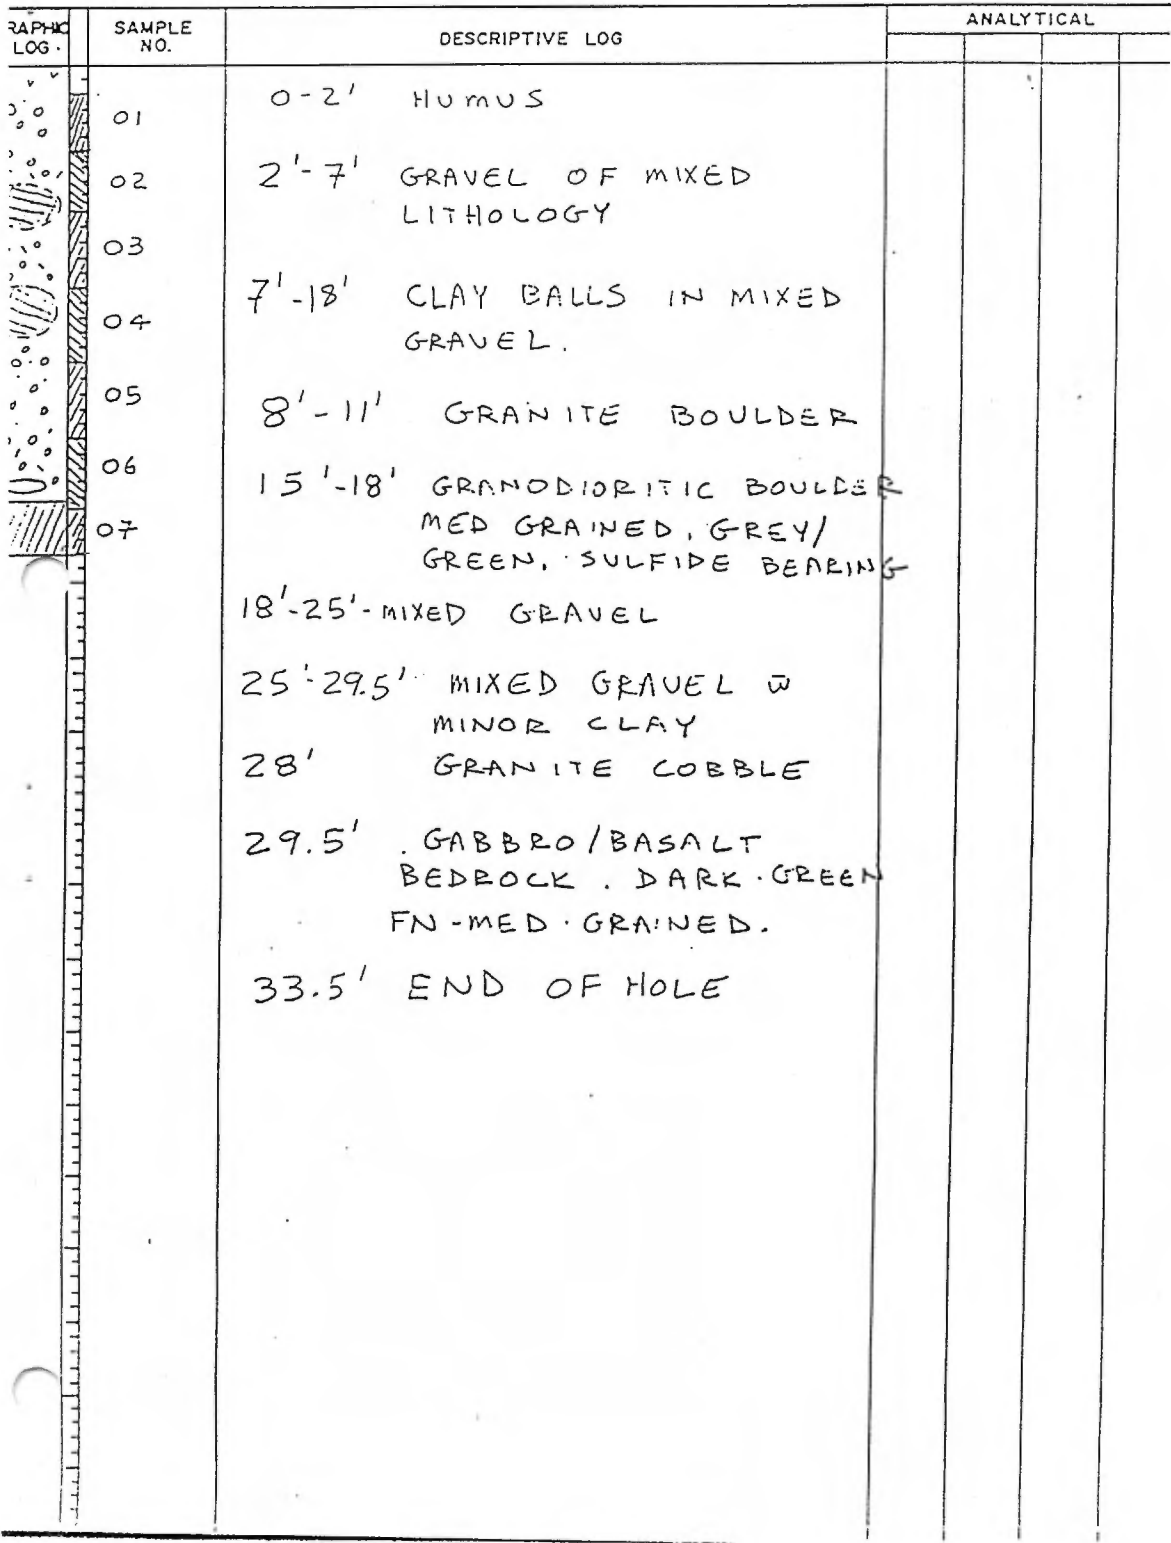 RAPHIC
LOG.
SAMPLE
NO.
DESCRIPTIVE LOG
ANALYTICAL
01
0-2' HUMUS
02
2'-7' GRAVEL OF MIXED
LITHOLOGY
03
7'-18' CLAY BALLS IN MIXED
GRAVEL.
04
05
8'-11' GRANITE BOULDER
06
15'-18' GRANODIORITIC BOULDER
MED GRAINED, GREY/
GREEN. SULFIDE BEARING
07
18'-25'-MIXED GRAVEL
25'-29.5' MIXED GRAVEL w̄
MINOR CLAY
28' GRANITE COBBLE
29.5' GABBRO/BASALT
BEDROCK. DARK.GREEN
FN-MED.GRAINED.
33.5' END OF HOLE